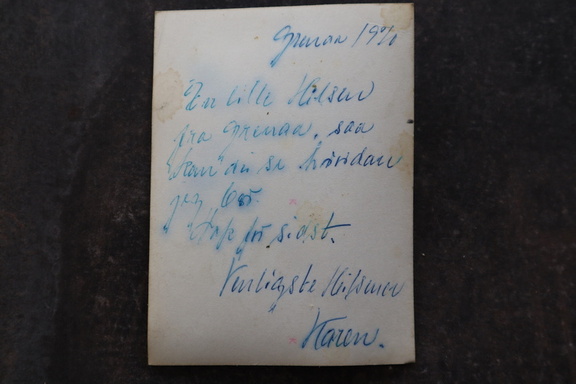 Grenaa 19%
En lille Hilsen
fra Grenaa, saa
kan du se hvordan
jeg bor.
Tak for sidst.
Venligste Hilsener
Karen.